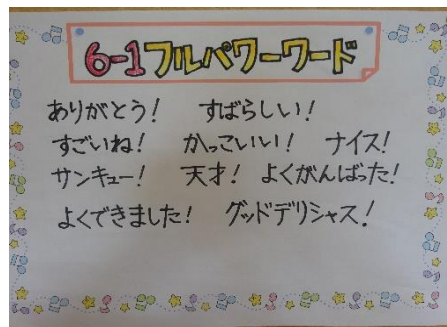 6-1フルパワーワード
ありがとう! すばらしい!
すごいね! かっこいい! ナイス!
サンキュー! 天才! よくがんばった!
よくできました! グッドデリシャス!